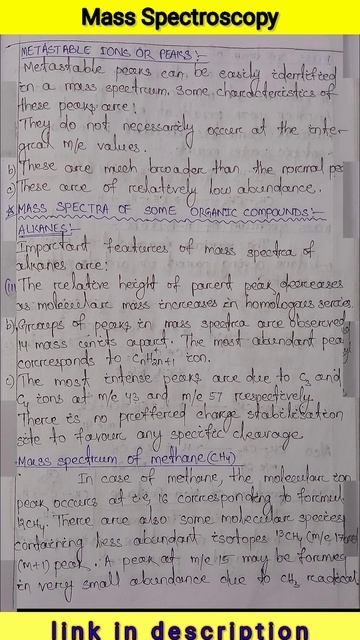 Mass Spectroscopy
METASTABLE IONS OR PEAKS:-
Metastable peaks can be easily identified
in a mass spectrum. Some characteristics of
these peaks are:
They do not necessarily occur at the inter-
gral m/e values.
b) These are much broader than the normal pea
c) These are of relatively low abundance.
* MASS SPECTRA OF SOME ORGANIC COMPOUNDS:-
ALKANES:-
Important features of mass spectra of
alkanes are:
The relative height of parent peak decreases
as molecular mass increases in homologous series
b) Groups of peaks in mass spectra are observed
14 mass units apart. The most abundant pea
corresponds to CnH2n+1 ion.
c) The most intense peaks are due to C3 and
C4 ions at m/e 43 and m/e 57 respectively.
There is no preffered charge stabilisation
site to favour any specific cleavage.
Mass spectrum of methane (CH4)
In case of methane, the molecular ion
peak occurs at 16 corresponding to formul
12CH4. There are also some molecular species
containing less abundant isotopes 13CH4 (m/e 17
(m+1) peak. A peak at m/e 15 may be formes
in very small abundance due to CH3 radical
link in description